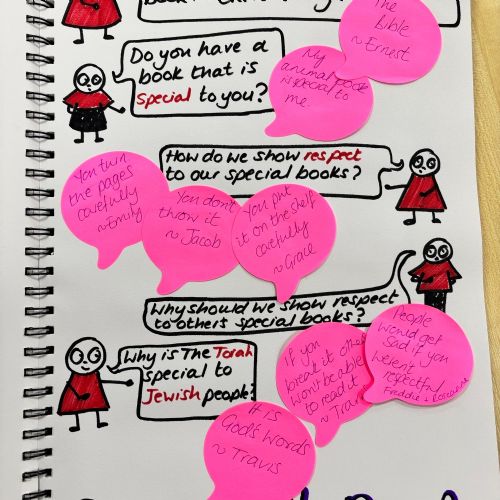 The
Bible
~ Ernest
Do you have a
book that is
special to you?
My
animal book
is special to
me
How do we show respect
to our special books?
You turn
the pages
carefully
~ Emily
You don't
throw it
~ Jacob
You put
it on the shelf
carefully
~ Grace
Why should we show respect
to others special books?
If you
break it other
won't be able
to read it
~ Travis
People
would get
sad if you
weren't
respectful
Freddie + Roseanna
Why is The Torah
special to
Jewish people?
It is
God's Words
~ Travis